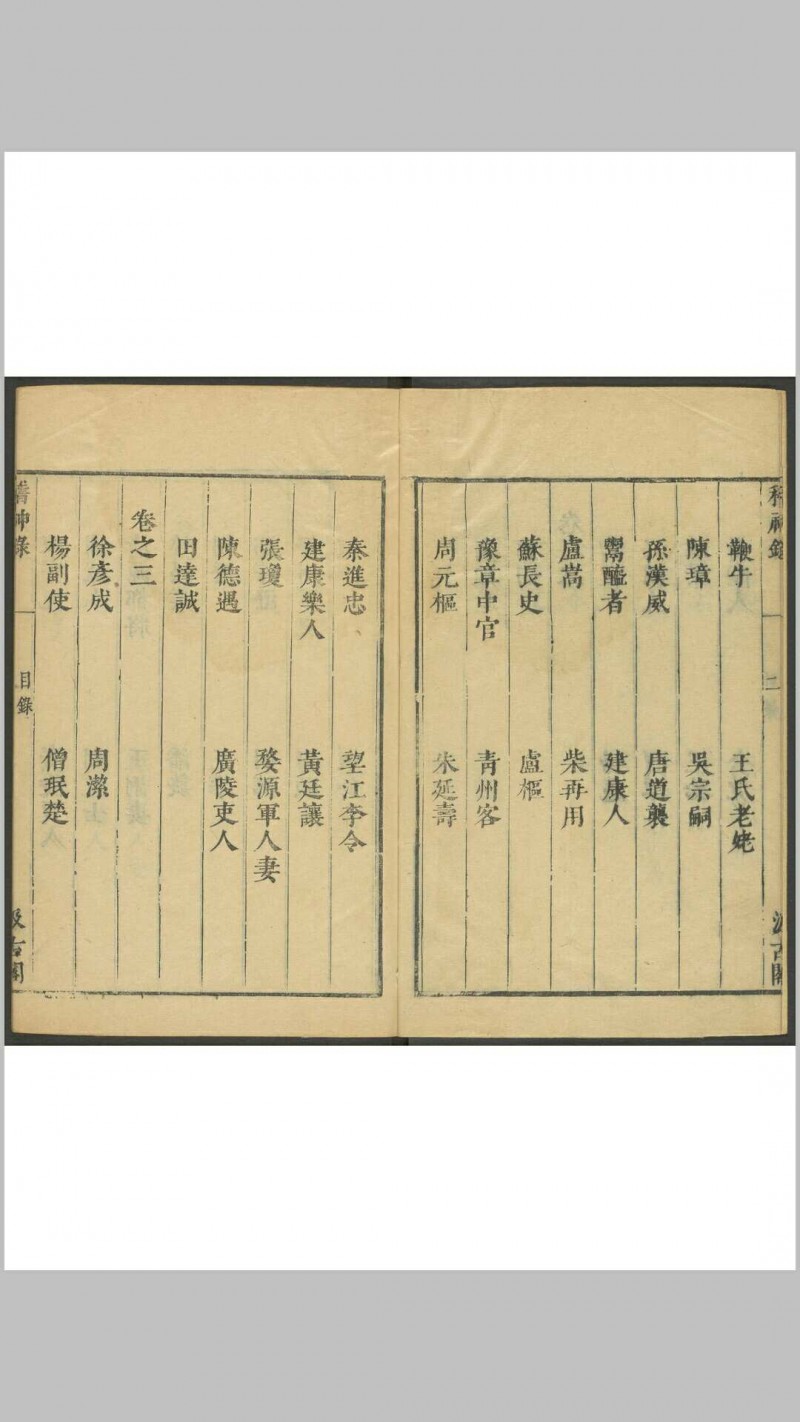 稽神錄
二
汲古閣
鞭牛 王氏老姥
陳璋 吳宗嗣
孫漢威 唐道襲
鬻醯者 建康人
盧嵩 柴再用
蘇長史 盧樞
豫章中官 青州客
周元樞 朱延壽
秦進忠 望江李令
建康樂人 黃廷讓
張瓊 婺源軍人妻
陳德遇 廣陵吏人
田達誠
卷之三
徐彥成 周潔
楊副使 僧珉楚
稽神錄
目錄
汲古閣